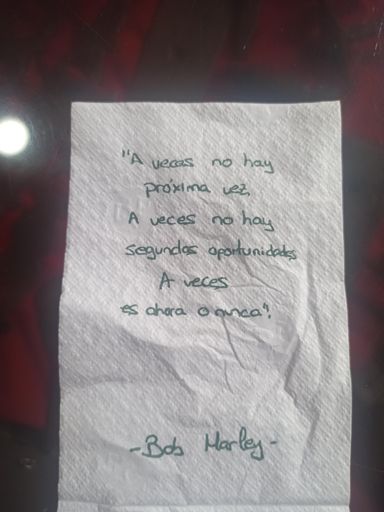 "A veces no hay
próxima vez,
A veces no hay
segundas oportunidades
A veces
es ahora o nunca".
-Bob Marley-